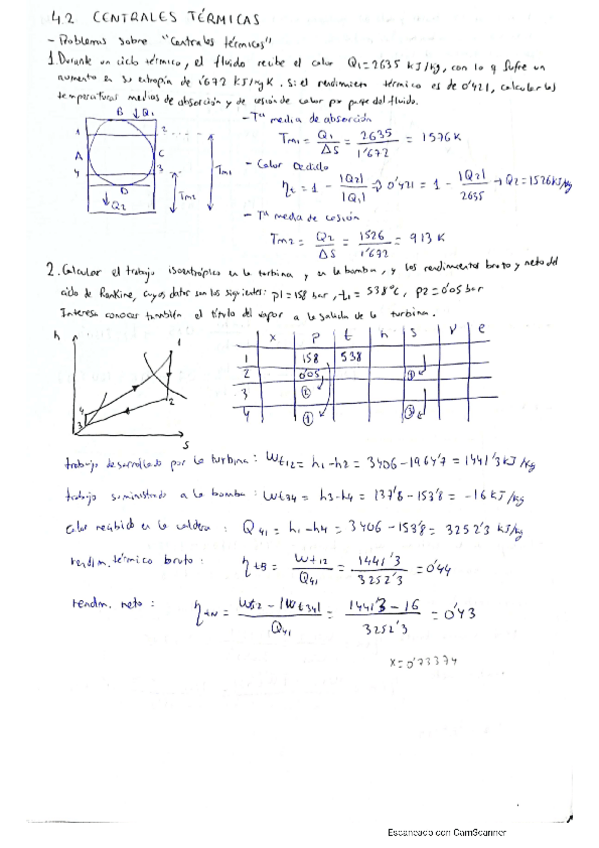 4.2 CENTRALES TÉRMICAS
- Problemas sobre "Centrales térmicas"
1. Durante un ciclo térmico, el fluido recibe el calor Q1 = 2635 KJ/Kg, con lo q sufre un
aumento en su entropía de 1'672 KJ/Kg K. Si el rendimiento térmico es de 0'421, calcular las
temperaturas medias de absorción y de cesión de calor por parte del fluido.
B ↓Q1
1 2
A C
4 3
D
↓Q2
Tm1
Tm2
- Tª media de absorción
Tm1 = Q1/ΔS = 2635/1'672 = 1576 K
- Calor cedido
ηt = 1 - |Q2|/|Q1| → 0'421 = 1 - |Q2|/2635 → Q2 = 1526 KJ/Kg
- Tª media de cesión
Tm2 = Q2/ΔS = 1526/1'672 = 913 K
2. Calcular el trabajo isoentrópico en la turbina y en la bomba, y los rendimientos bruto y neto del
ciclo de Rankine, cuyos datos son los siguientes: p1 = 158 bar, t1 = 538ºC, p2 = 0'05 bar
Interesa conocer también el título del vapor a la salida de la turbina.
h
1
4
3
2
S
x p t h s v e
1 158 538
2 0'05 ①
3 ②
4 ①
trabajo desarrollado por la turbina: Wt12 = h1 - h2 = 3406 - 1964'7 = 1441'3 KJ/Kg
trabajo suministrado a la bomba: Wt34 = h3 - h4 = 137'8 - 153'8 = -16 KJ/Kg
Calor recibido en la caldera: Q41 = h1 - h4 = 3406 - 153'8 = 3252'3 KJ/Kg
rendim. térmico bruto: ηtB = Wt12/Q41 = 1441'3/3252'3 = 0'44
rendim. neto: ηtN = Wt12 - |Wt34|/Q41 = 1441'3 - 16/3252'3 = 0'43
x = 0'73374
Escaneado con CamScanner